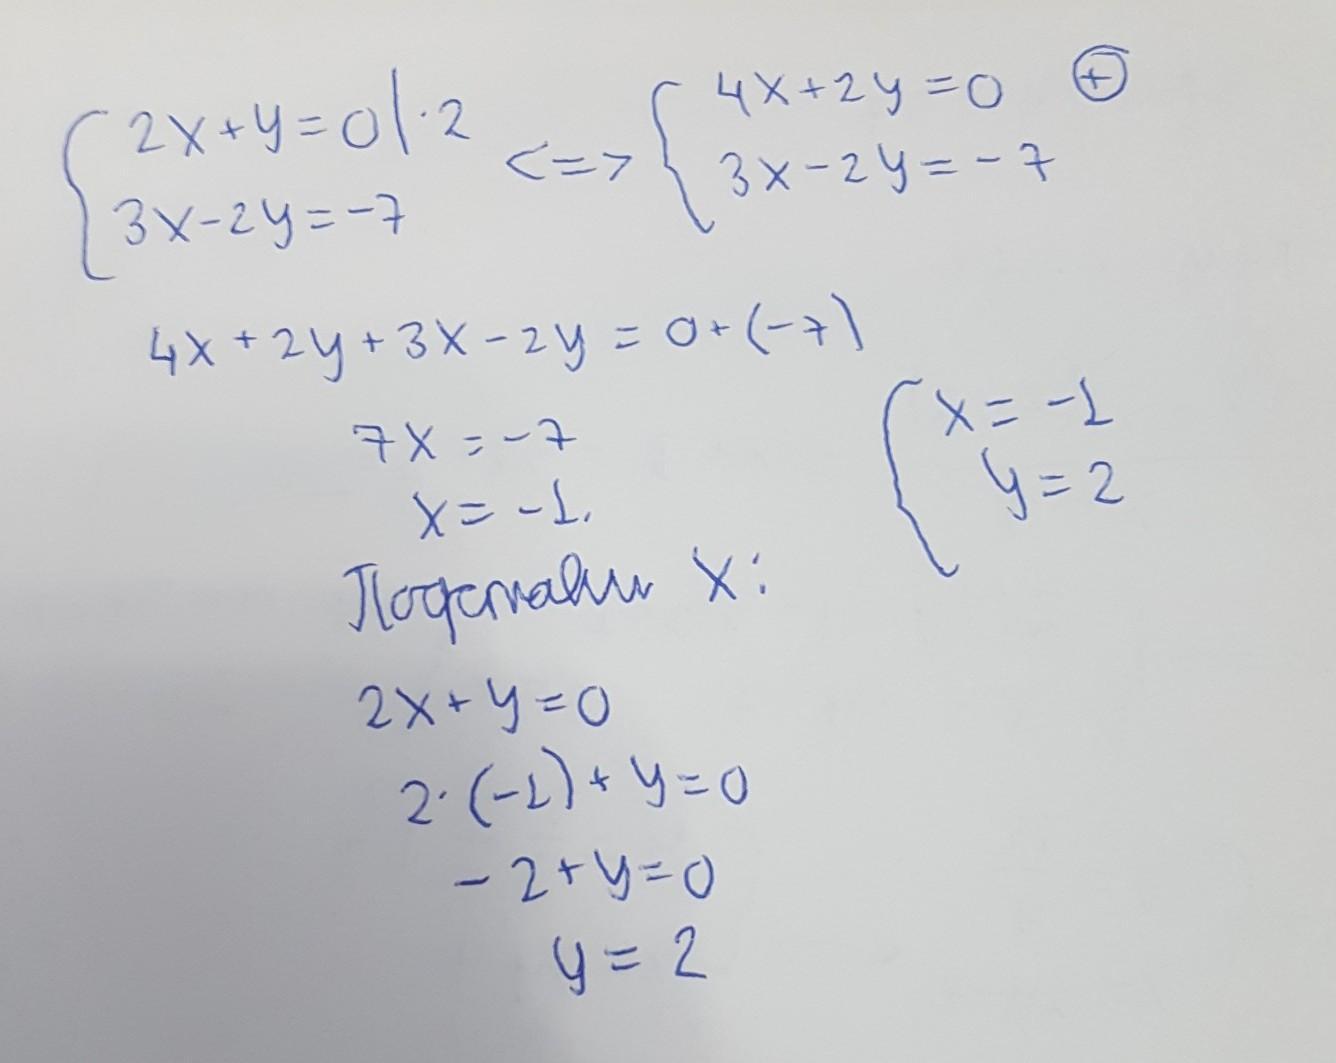 { 2x+y=0|·2 <=> { 4x+2y=0 ⊕
3x-2y=-7 3x-2y=-7
4x+2y+3x-2y=0+(-7)
7x=-7
x=-1.
{ x=-1
y=2
Подставим x:
2x+y=0
2·(-1)+y=0
-2+y=0
y=2